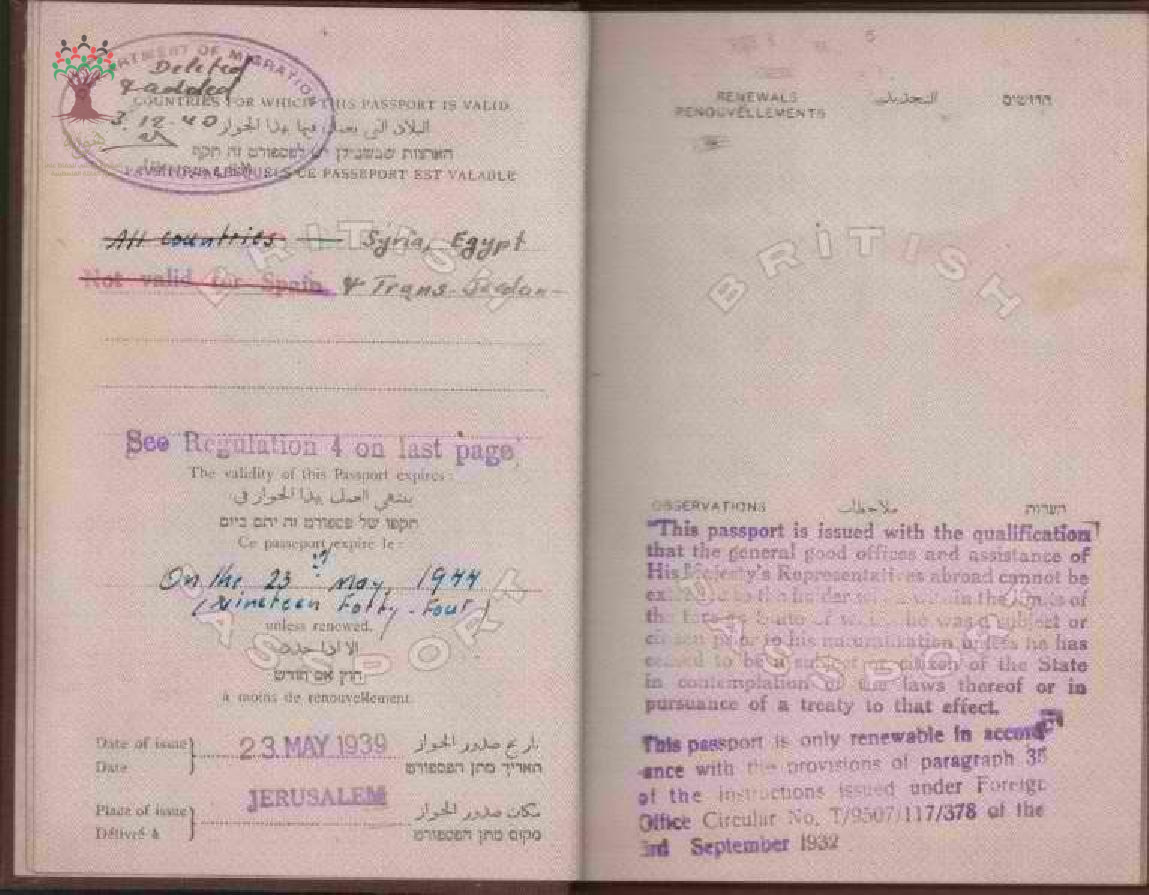 DEPARTMENT OF MIGRATION
Deleted
& added
3.12.40
COUNTRIES FOR WHICH THIS PASSPORT IS VALID
البلاد التي يعمل فيها بهذا الجواز
הארצות שבשבילן יש לפספורט זה תקף
PAYS POUR LESQUELS CE PASSEPORT EST VALABLE
All countries — Syria, Egypt
Not valid for Spain & Trans-Jordan-
See Regulation 4 on last page
The validity of this Passport expires:
ينتهي العمل بهذا الجواز في:
תקפו של פספורט זה יתם ביום
Ce passeport expire le:
On the 23rd May, 1944
(Nineteen Forty-Four)
unless renewed.
الا اذا جدد
חוץ אם חודש
à moins de renouvellement.
Date of issue تاريخ صدور الجواز
23 MAY 1939
Date תאריך מתן הפספורט
JERUSALEM
Place of issue مكان صدور الجواز
Délivré à מקום מתן הפספורט
5
RENEWALS التجديدات חדושים
RENOUVELLEMENTS
OBSERVATIONS ملاحظات הערות
"This passport is issued with the qualification
that the general good offices and assistance of
His Majesty's Representatives abroad cannot be
to the holder within the limits of
the State of which he was a subject or
citizen prior to his naturalization unless he has
ceased to be a subject or citizen of the State
in contemplation of the laws thereof or in
pursuance of a treaty to that effect.
This passport is only renewable in accord-
ance with the provisions of paragraph 35
of the instructions issued under Foreign
Office Circular No. T/9507/117/378 of the
3rd September 1932
BRITISH
PASSPORT
BRITISH
PASSPORT